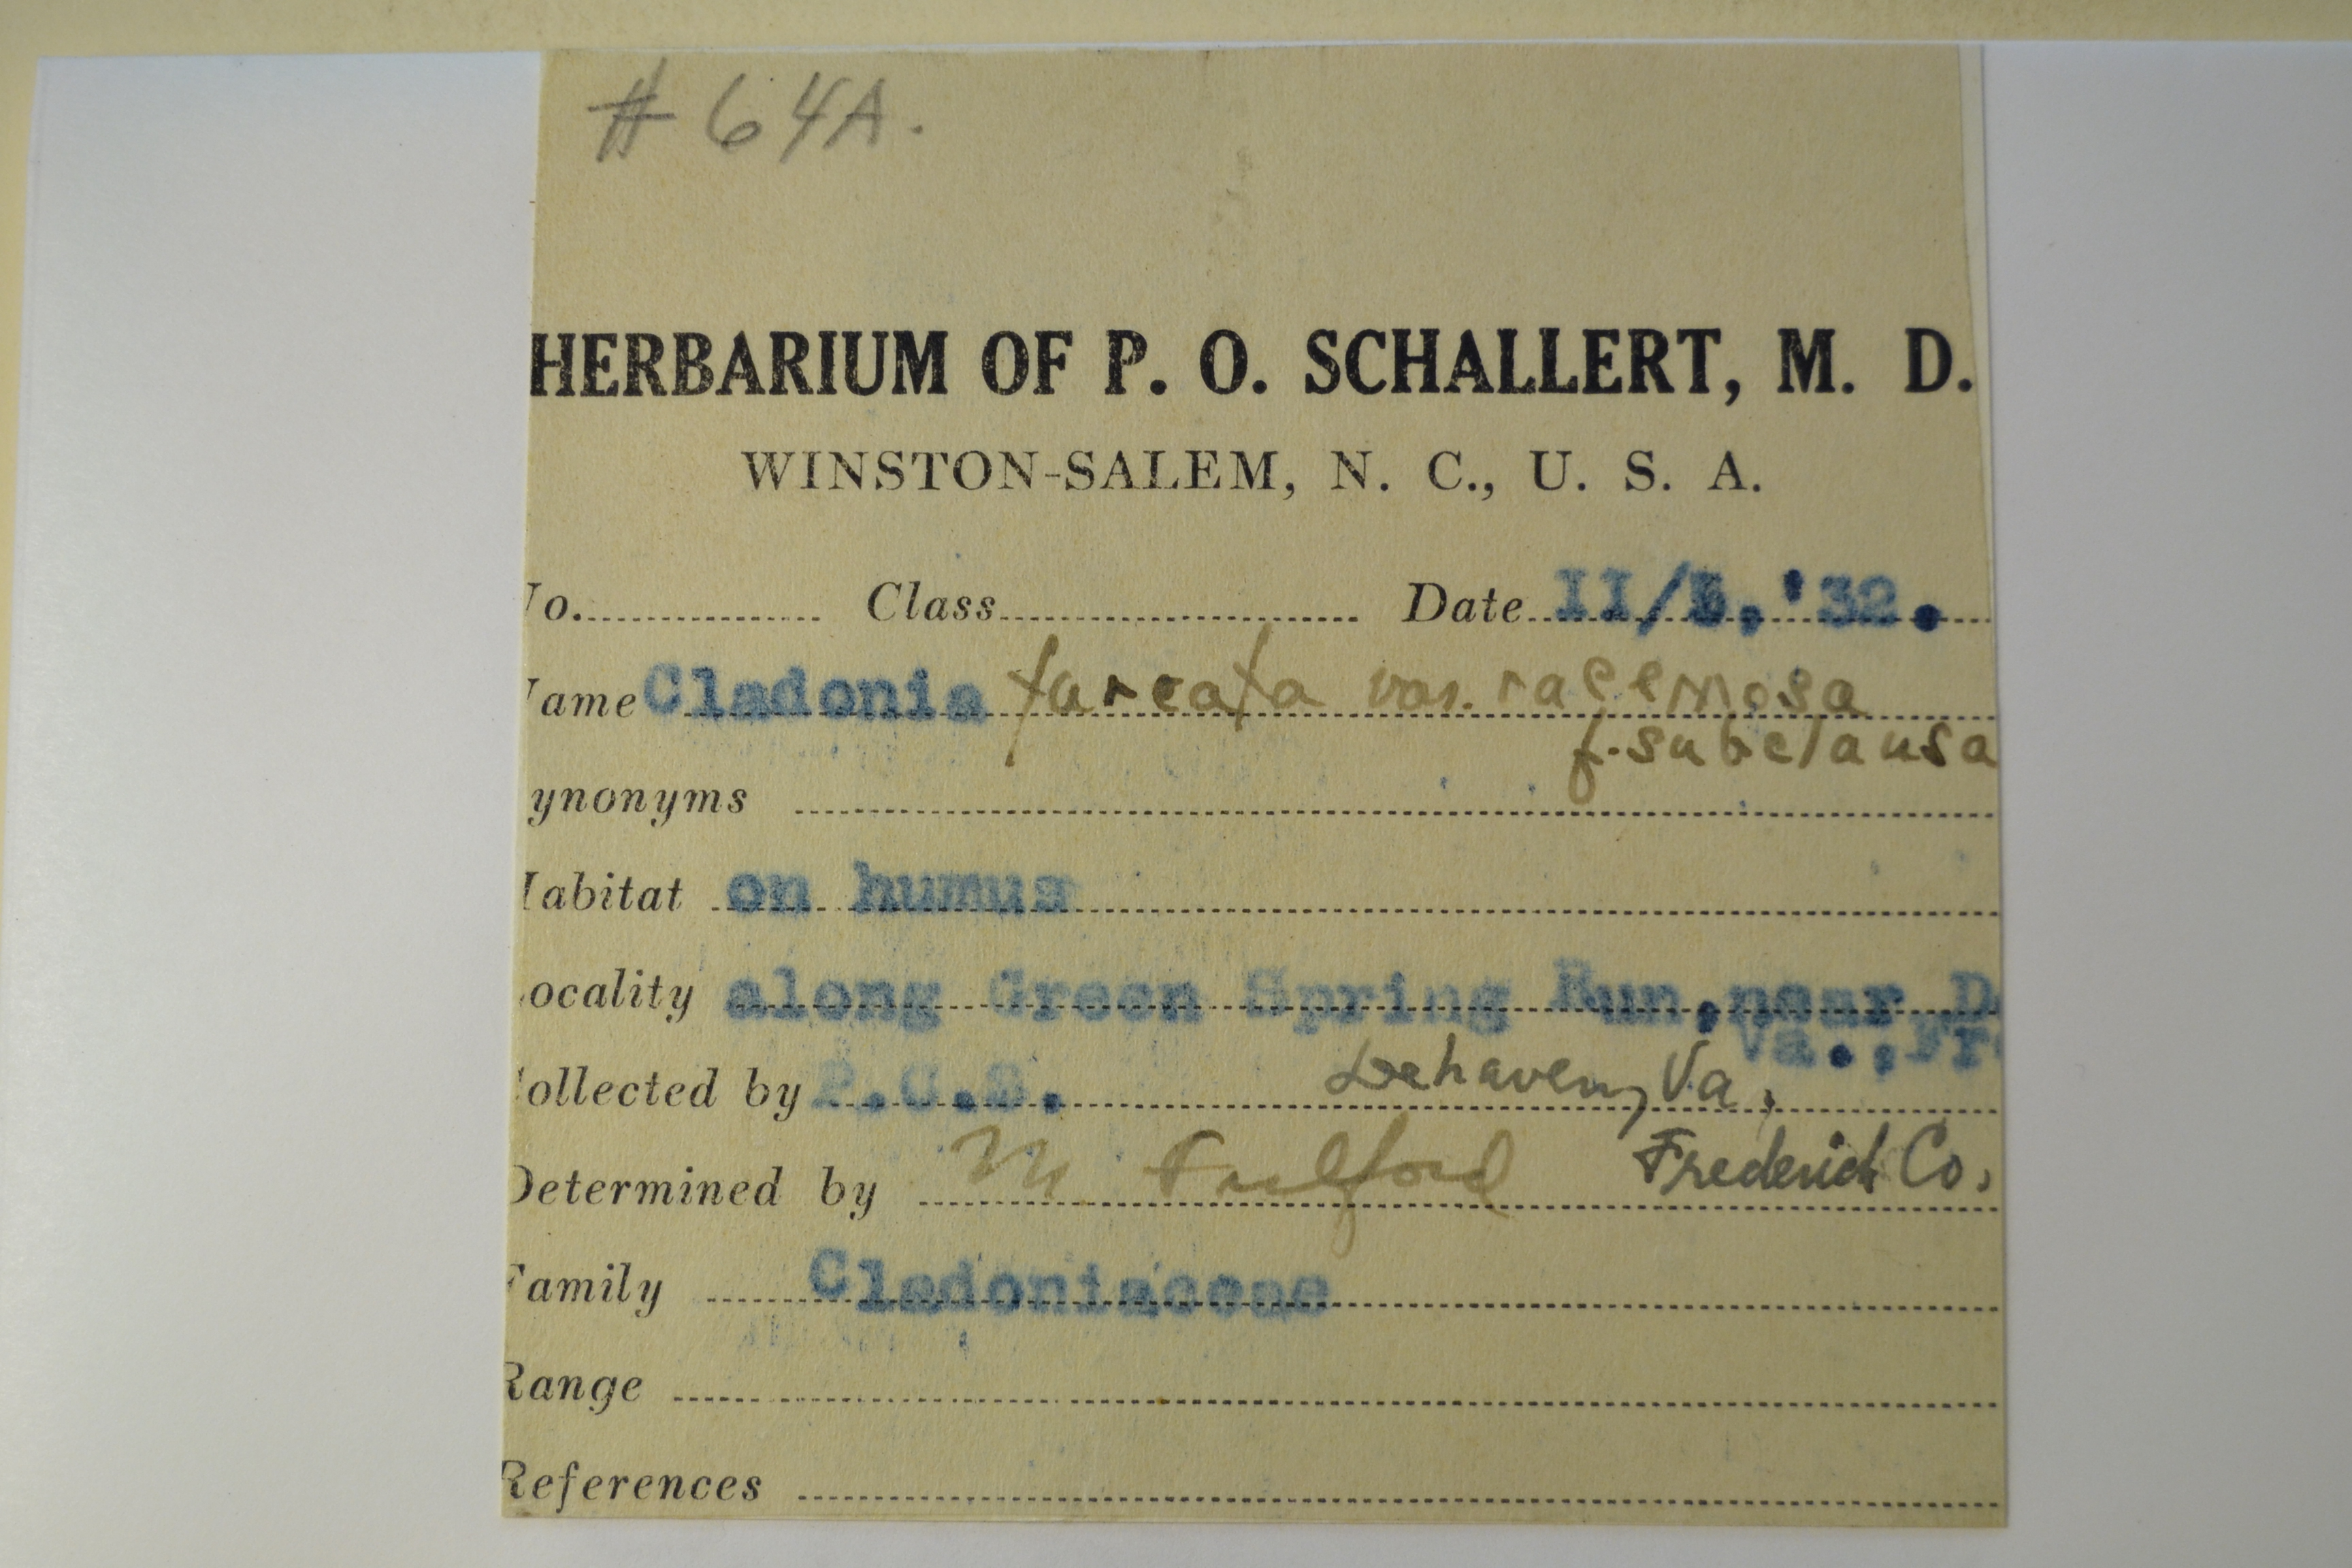 # 64A.
HERBARIUM OF P. O. SCHALLERT, M. D.
WINSTON-SALEM, N. C., U. S. A.
No. Class Date II/5, '32.
Name Cladonia furcata var. racemosa
f. subclausa
ynonyms
Habitat on humus
ocality along Green Spring Run, near D
Va., Fr
ollected by P.O.S. Dehaven, Va,
Determined by M. Fulford Frederick Co.
Family Cladoniaceae
Range
References